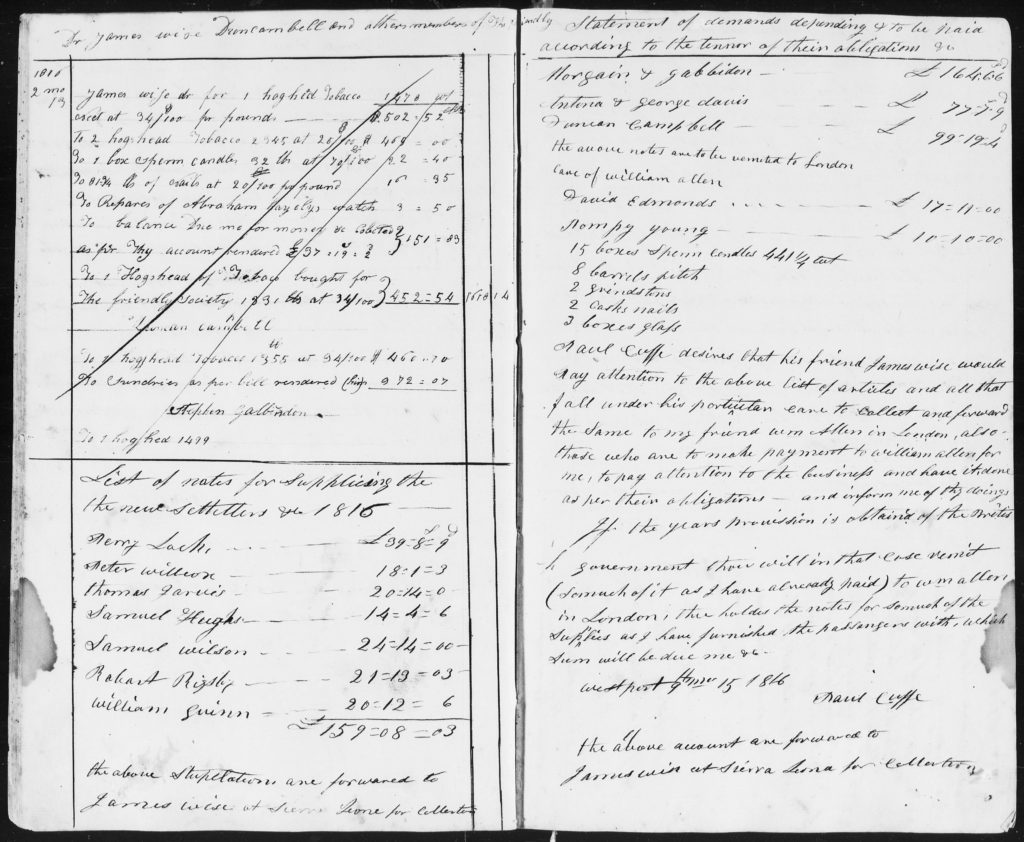 Dr James wise Duncambell and others members of
1816
2 mo
13
James wise dr for 1 hoghed Tobacco 1478 wt
excet at 34/100 pr pounds — $502=52
To 2 hogshead Tobacco 2345 at 20/100 $ 469=00
To 1 box sperm candles 32 lb at 70/100 22=40
To 81¾ lb of nails at 20/100 pr pound 16=35
To Repares of Abraham watch 3=50
To balance Due me for money &c
as pr Thy account rendered £37=19=2 } 151=83
To 1 Hogshead of Tobaco bought for
The friendly Society 1331 lb at 34/100 } 452=54 1618 14
Duncan cambell
To 1 hogshead Tobacco 1355 wt 34/100 $ 460=70
To Sundries as per bill rendered 972=07
Stephen Gabbidon
To 1 hoghed 1499
List of notes for Supplicing the
the new Settlers &c 1816
Perry Lock. £39=8=9
Peter willcox 18=1=3
thomas Jarvis 20=14=0
Samuel Hughs 14=4=6
Samuel wilson 24=14=00
Robart Rigsby 21=13=03
william Guinn 20=12=6
£159=08=03
the above Stupelations are forwared to
James wise at Sierra Leone for Collection
Statement of demands depending & to be paid
according to the tennor of their obligations &c
Morgain & Gabbidon — £164:6:6
Anteria & George davis £ 77-7-9
Duncan Campbell — £ 99-19-4
the above notes are to be remited to London
care of william allen
David Edmonds £ 17=11=00
Pompy young — £ 10=10=00
15 boxes Sperm candles 441¼ wt
8 barrels pitch
2 grindstons
2 casks nails
3 boxes glass
Paul Cuffe desires that his friend James wise would
pay attention to the above list of articles and all that
fall under his particular care to collect and forward
the Same to my friend wm Allen in London, also
those who are to make payment to william allen for
me, to pay attention to the business and have it done
as per their obligations — and inform me of thy doings
If the years provission is obtaind of the Brites
h government thou will in that case remit
(Somuch of it as I have already paid) to wm allen
in London, thee holdes the notes for somuch of the
Supplies as I have furnished the passangers with, which
Sum will be due me &c
westport 9th mo 15 1816
Paul Cuffe
the above account are forwared to
James wise at Sierra Leona for Collection